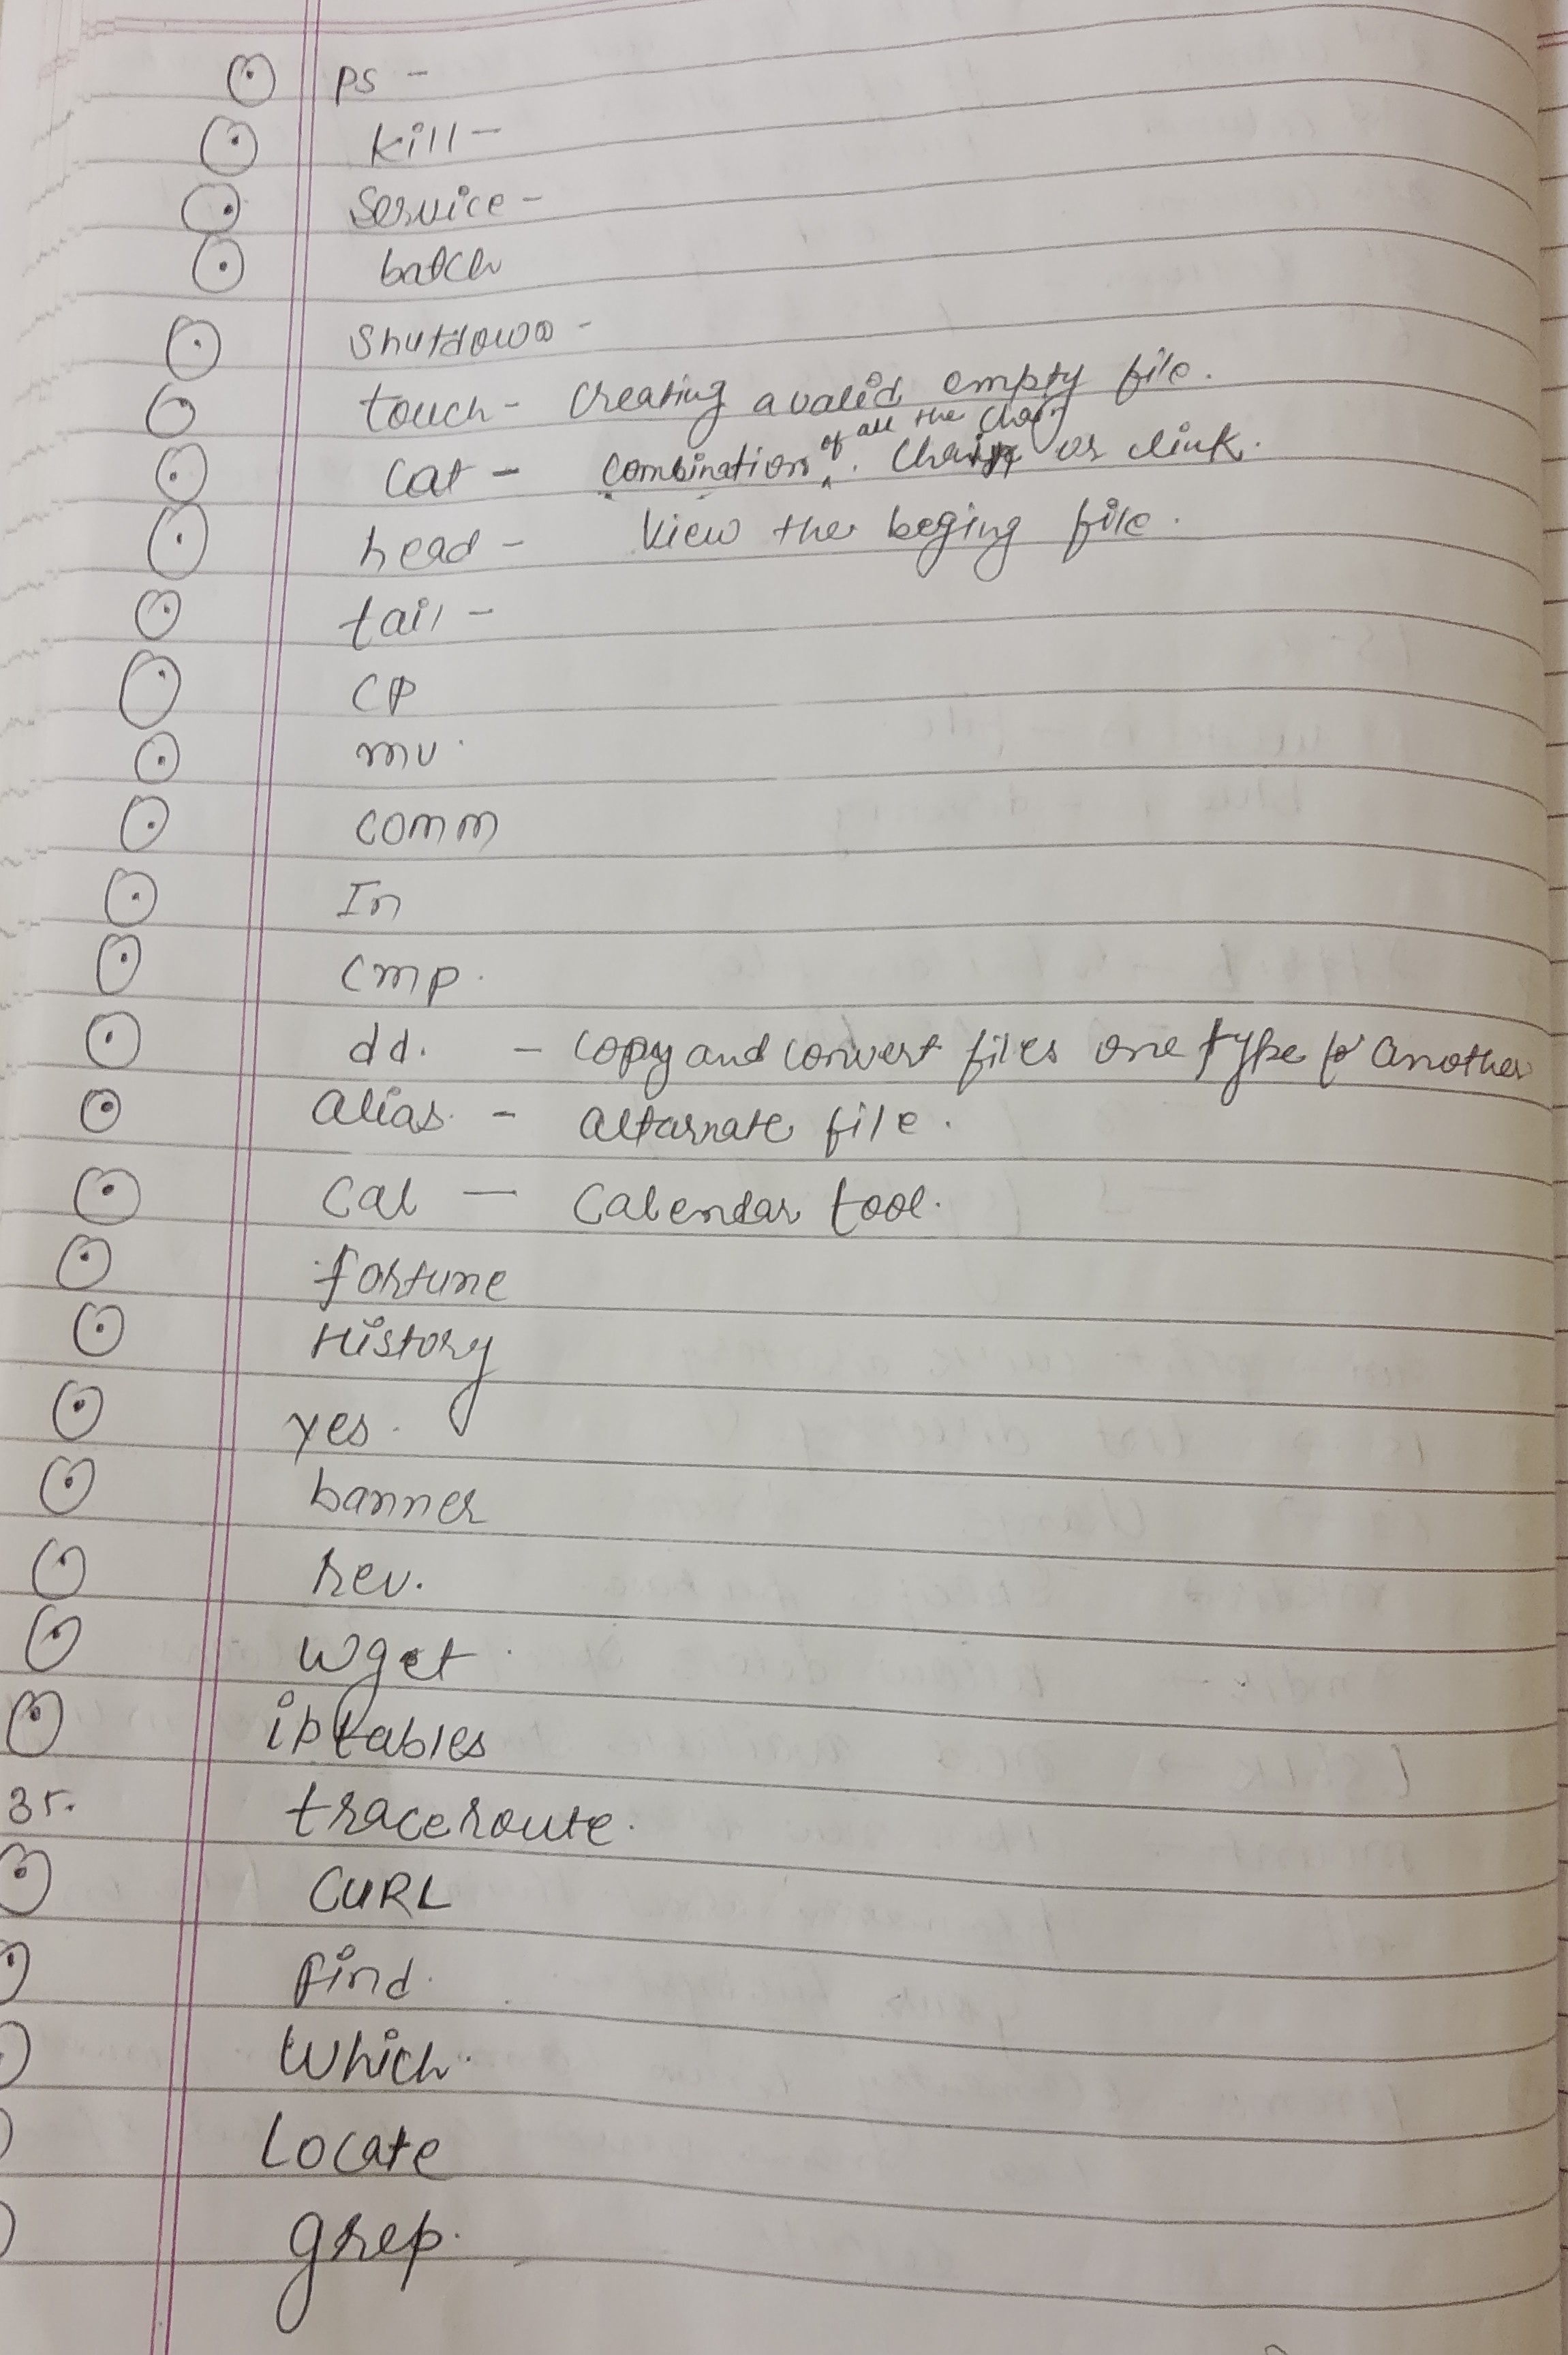 ps -
kill -
Service -
batch
Shutdown -
touch - Creating a valid empty file.
of all the chain
cat - combination . chain or link.
head - View the beging file.
tail -
CP
mv
comm
In
cmp.
dd. - copy and convert files one type to another
alias. - altarnate file.
Cal - Calendar tool.
fortune
History
yes.
banner
rev.
wget
iptables
35. traceroute.
CURL
find.
which.
Locate
grep.